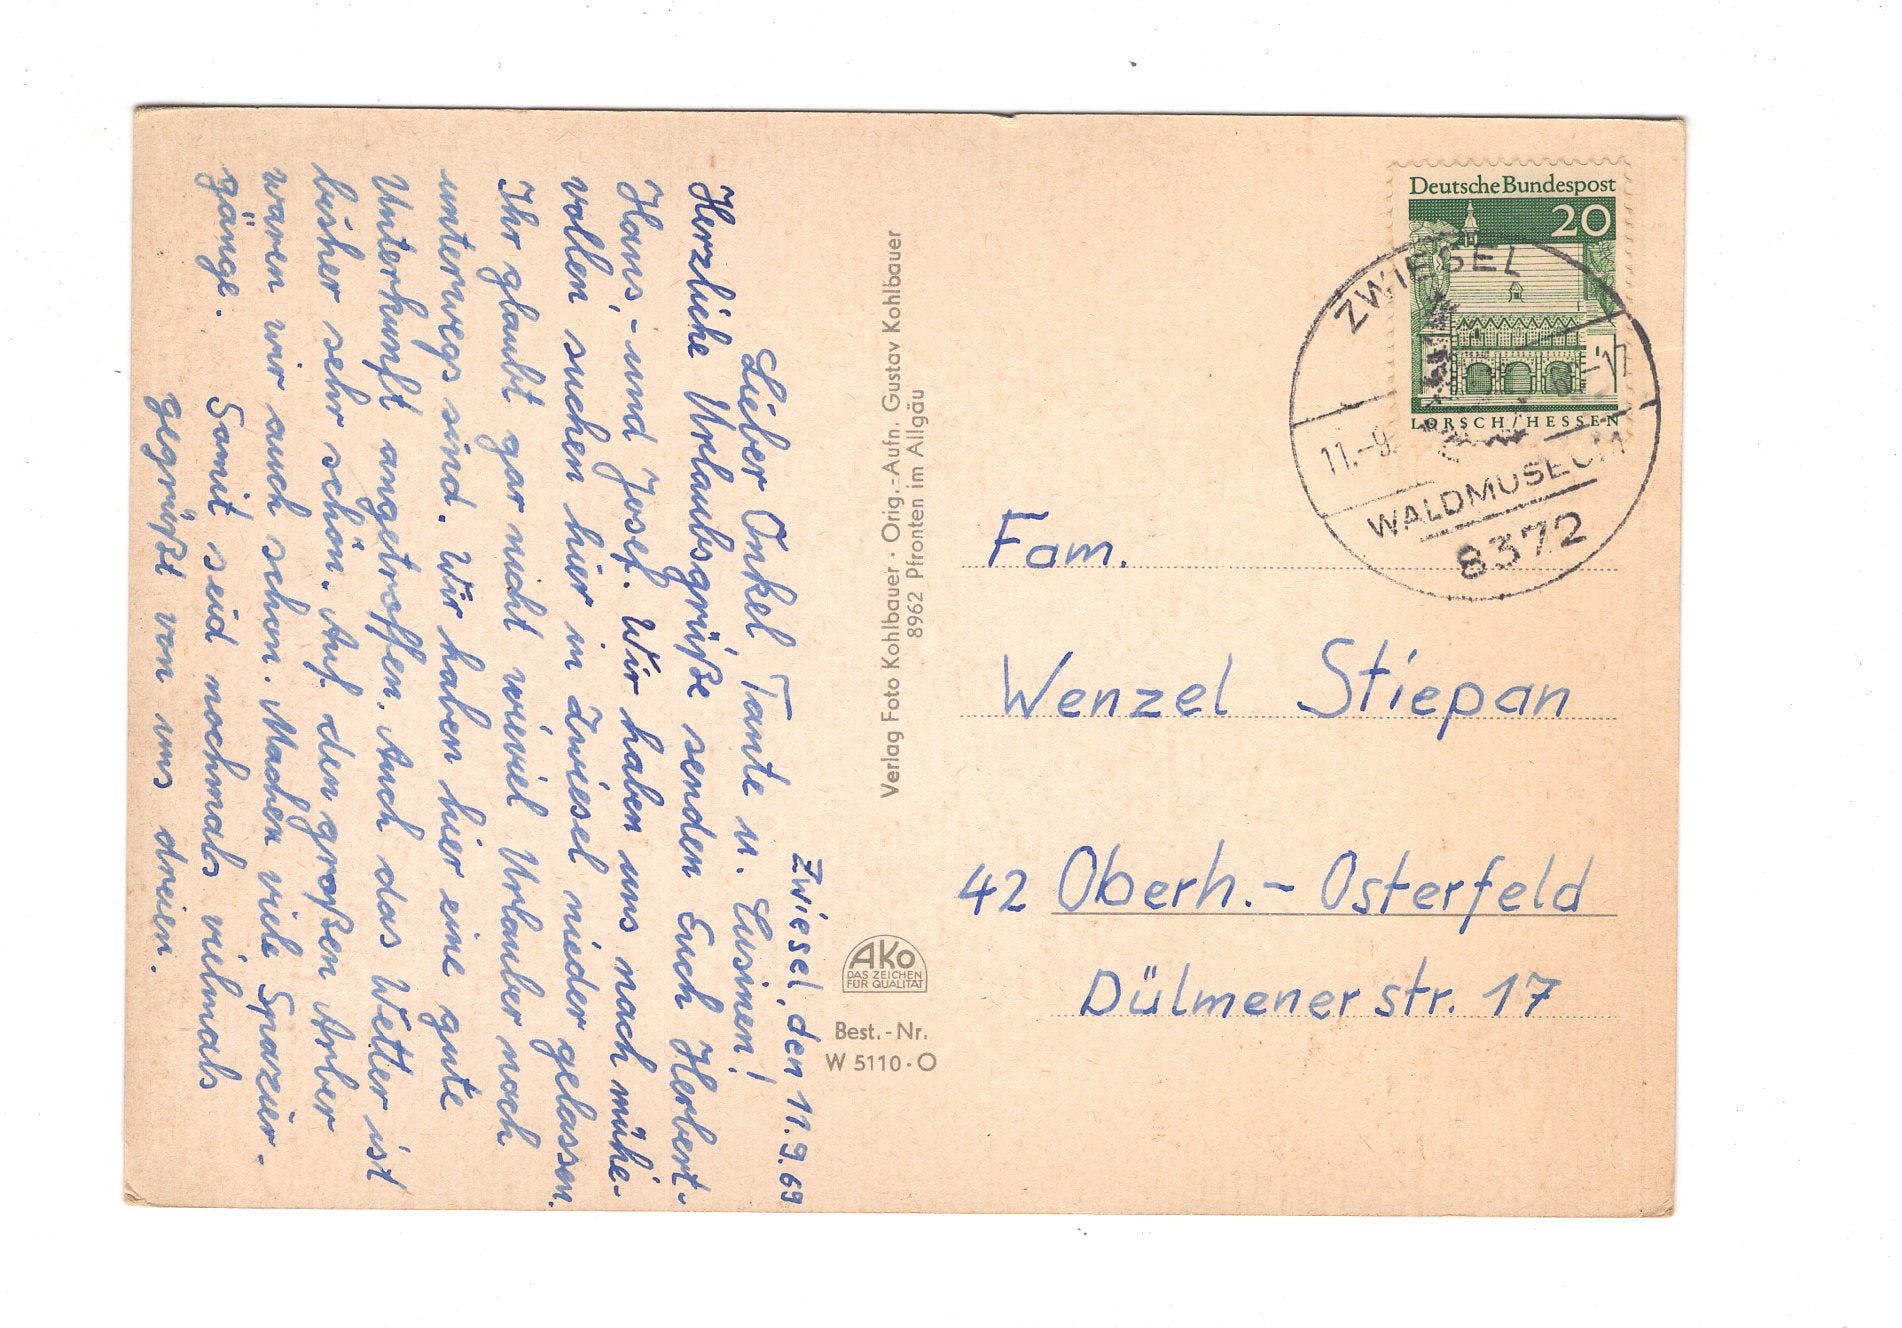 Zwiesel, den 11.9.69
Lieber Onkel Tante u. Cusinen!
Herzliche Urlaubsgrüße senden Euch Herbert-
Hans,- und Josef. Wir haben uns nach mühe-
vollen suchen hier in Zwiesel nieder gelassen.
Ihr glaubt gar nicht wieviel Urlauber noch
unterwegs sind. Wir haben hier eine gute
Unterkunft angetroffen. Auch das Wetter ist
bisher sehr schön. Auf den großen Arber
waren wir auch schon. Machen viele Spazier-
gänge. Somit seid nochmals vielmals
gegrüßt von uns dreien.
Verlag Foto Kohlbauer · Orig.-Aufn. Gustav Kohlbauer
8962 Pfronten im Allgäu
AKO
DAS ZEICHEN
FÜR QUALITÄT
Best.-Nr.
W 5110·O
Deutsche Bundespost
20
LORSCH/HESSEN
ZWIESEL
11.-9.
17
WALDMUSEUM
8372
Fam.
Wenzel Stiepan
42 Oberh.- Osterfeld
Dülmener str. 17